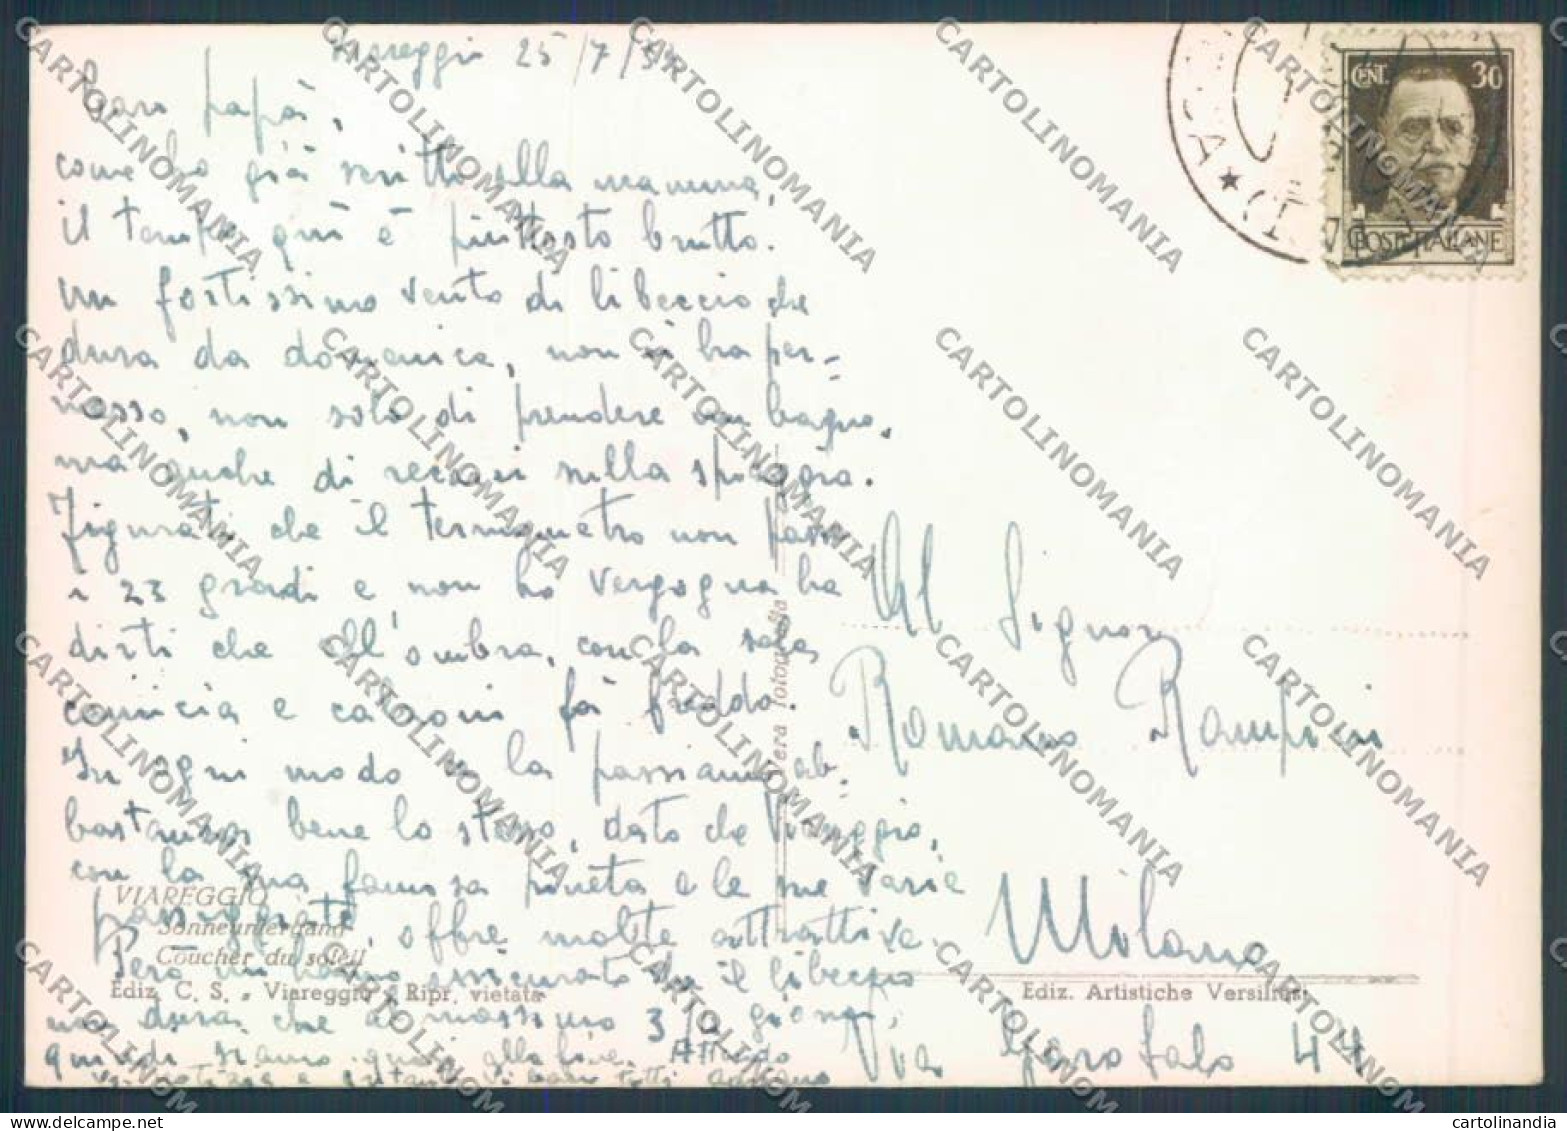 Viareggio 25/7/
Caro papà,
come ho già scritto alla mamma,
il tempo quì è piuttosto brutto.
Un fortissimo vento di libeccio che
dura da domenica, non ci ha per-
messo, non solo di prendere un bagno,
ma anche di recarci sulla spiaggia.
Figurati che il termometro non passa
i 23 gradi e non ho vergogna ha
dirti che all'ombra, con la sola
camicia e calzoni fà freddo.
In ogni modo la passiamo ab-
bastanza bene lo stesso, dato che Viareggio,
con la sua famosa pineta e le sue varie
passeggiate, offre molte attrattive.
Però mi hanno assicurato che il libeccio
non dura che al massimo 3/4 giorni,
quindi siamo quasi alla fine.
VIAREGGIO
Sonneuntergang
Coucher du soleil
Ediz. C. S. - Viareggio - Ripr. vietata
Vera fotografia
CENT. 30
POSTE ITALIANE
Al Signor
Romano Rampini
Milano
Ediz. Artistiche Versilia
Via Garofalo 44
CARTOLINOMANIA
cartolinandia